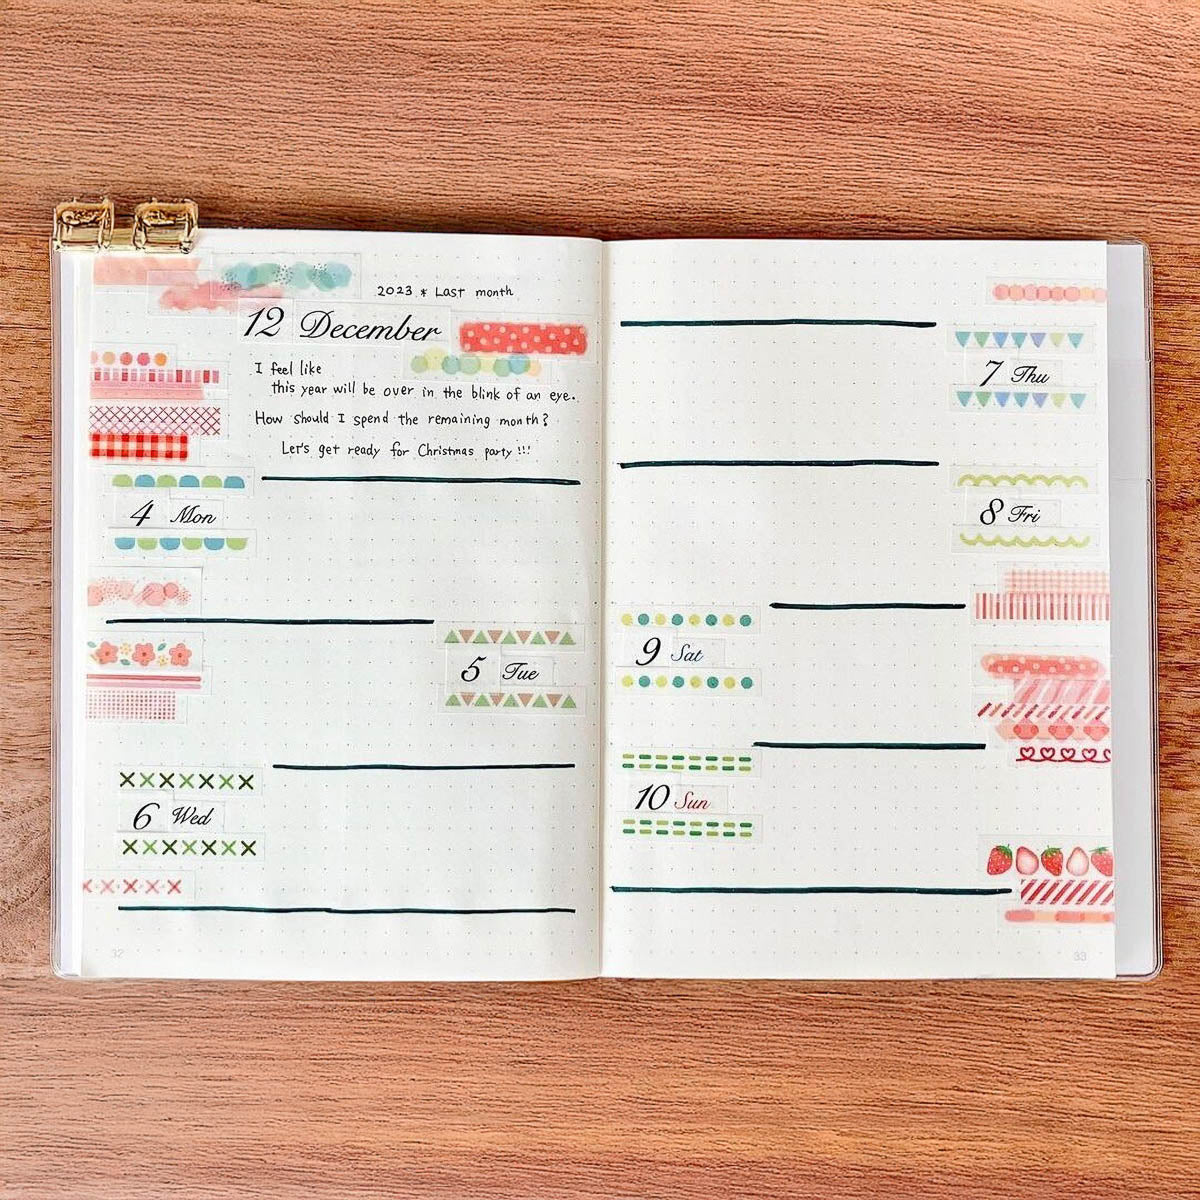 2023 * Last month
12 December
I feel like
this year will be over in the blink of an eye.
How should I spend the remaining month?
Let's get ready for Christmas party !!!
4 Mon
5 Tue
6 Wed
32
7 Thu
8 Fri
9 Sat
10 Sun
33